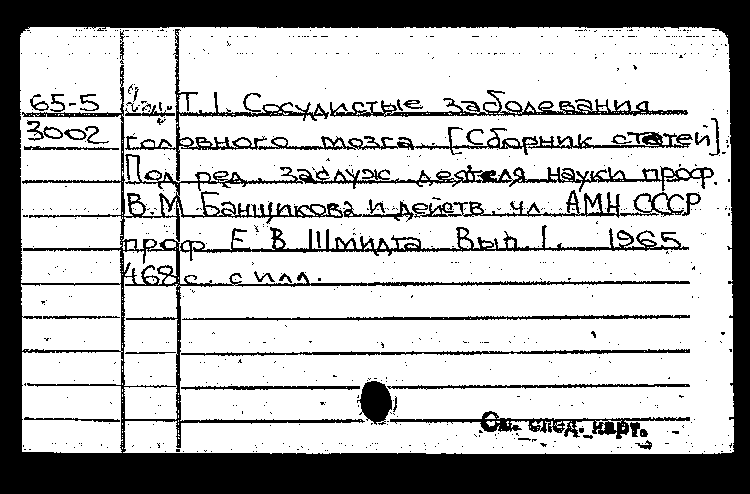 65-5 Т. I. Сосудистые заболевания
3002 головного мозга. [Сборник статей]
Под ред. заслуж. деятеля науки проф.
В. М. Банщикова и действ. чл. АМН СССР
проф. Е. В. Шмидта. Вып. I. 1965
468 с. с илл.
См. след. карт.